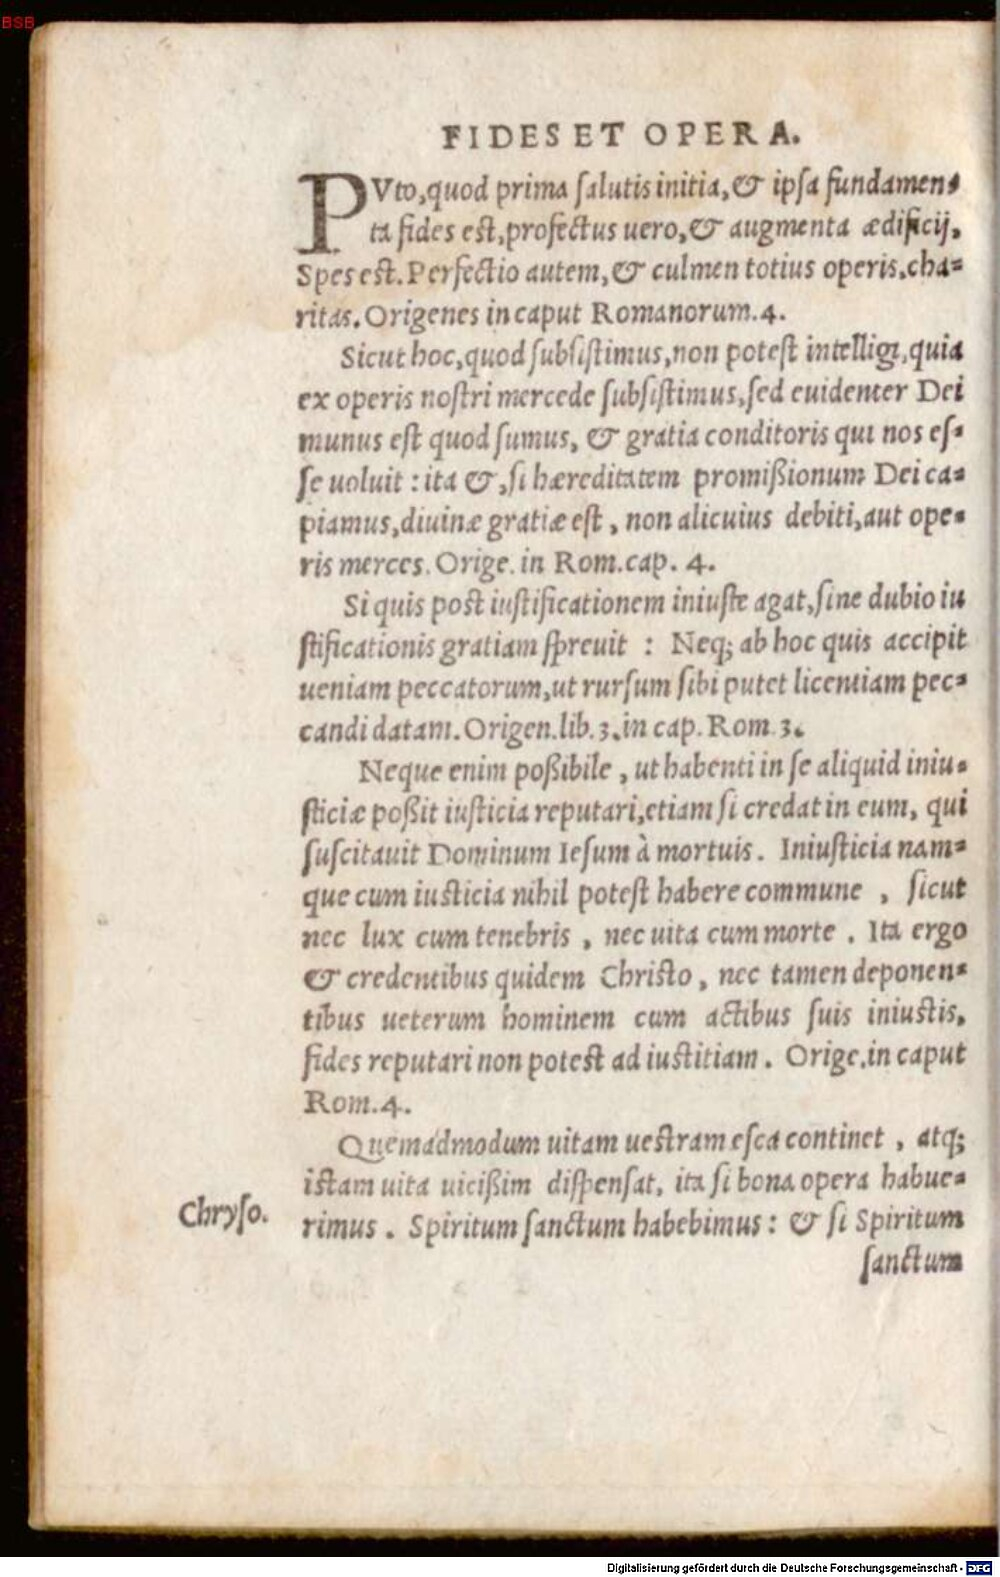 BSB
FIDES ET OPERA.
PVto, quod prima salutis initia, & ipsa fundamen-
ta fides est, profectus uero, & augmenta ædificij,
Spes est. Perfectio autem, & culmen totius operis, cha-
ritas. Origenes in caput Romanorum. 4.
Sicut hoc, quod subsistimus, non potest intelligi, quia
ex operis nostri mercede subsistimus, sed euidenter Dei
munus est quod sumus, & gratia conditoris qui nos es-
se uoluit : ita &, si hæreditatem promißionum Dei ca-
piamus, diuinæ gratiæ est, non alicuius debiti, aut ope-
ris merces. Orige. in Rom. cap. 4.
Si quis post iustificationem iniuste agat, sine dubio iu
stificationis gratiam spreuit : Neq; ab hoc quis accipit
ueniam peccatorum, ut rursum sibi putet licentiam pec-
candi datam. Origen. lib. 3. in cap. Rom. 3.
Neque enim poßibile, ut habenti in se aliquid iniu-
sticiæ poßit iusticia reputari, etiam si credat in eum, qui
suscitauit Dominum Iesum à mortuis. Iniusticia nam-
que cum iusticia nihil potest habere commune, sicut
nec lux cum tenebris, nec uita cum morte. Ita ergo
& credentibus quidem Christo, nec tamen deponen-
tibus ueterum hominem cum actibus suis iniustis,
fides reputari non potest ad iustitiam. Orige. in caput
Rom. 4.
Quemadmodum uitam uestram esca continet, atq;
istam uita uicißim dispensat, ita si bona opera habue-
Chryso.
rimus. Spiritum sanctum habebimus : & si Spiritum
sanctum
Digitalisierung gefördert durch die Deutsche Forschungsgemeinschaft - DFG